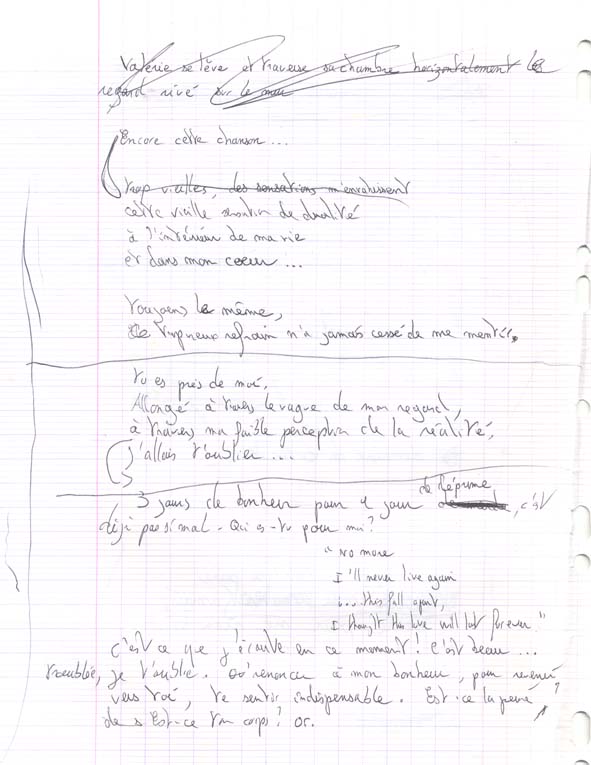 Valérie se lève et traverse sa chambre horizontalement les
regard rivé sur le mur
Encore cette chanson...
trop vieilles, des sensations m'envahissent
cette vieille sensation de dualité
à l'intérieur de ma vie
et dans mon coeur...
toujours le même,
refrain n'a jamais cessé de me mentir.
tu es près de moi,
Allongé à travers le vague de mon regard,
à travers ma faible perception de la réalité,
j'allais t'oublier...
3 jours de bonheur pour 1 jour de déprime, c'est
déjà pas si mal - Qui es-tu pour moi?
"No more
I'll never live again
i... this fall apart,
I thought this love will last forever."
c'est ce que j'écoute en ce moment! C'est beau...
troublée, je t'oublie. à mon bonheur, pour revenir
vers toi, te sentir indispensable. Est-ce la
de s Est-ce ton corps? or.